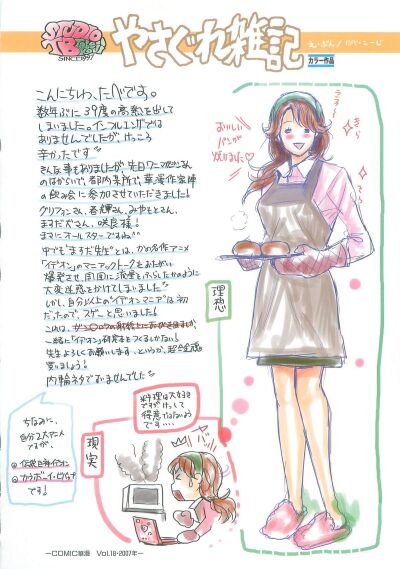 STUDIO
TB
SINCE1997
やさぐれ雑記
カラー作品
こんにちわ、たべです。
数年ぶりに39度の高熱を出して
しまいました。インフルエンザでは
ありませんでしたが、けっこう
辛かったです
そんな事もありましたが、先日ワニマガジンさん
のはからいで、都内某所で、華漫作家陣
の飲み会に参加させていただきました!
グリフィンさん、春輝さん、みやもとさん、
ますだ犬さん、咲良様!
まさにオールスターですねぇ
中でも"ますだ先生"とは、かの名作アニメ
「イデオン」のマニアックトークをおたがい
爆発させ、周囲に流星をふらしたかのように
大変迷惑をかけてしまいました
しかし、自分以上の"イデオンマニア"は初
だったので、スゲーと思いました!
これは、
一緒に「イデオン」研究本をつくるしかない!
先生よろしくお願いします、というか、超合金魂
買いましょう!
内輪ネタですいませんでした
ちなみに、
自分2大アニメ
ですが、
◎伝説巨神イデオン
◎カウボーイ・ビバップ
です!
おいしい
パンが
焼けました♡
ラララ〜
きら
きら
理想
料理は大好き
ですがけっして
得意ではないよう
です…
現実
—COMIC華漫 Vol.18・2007年—